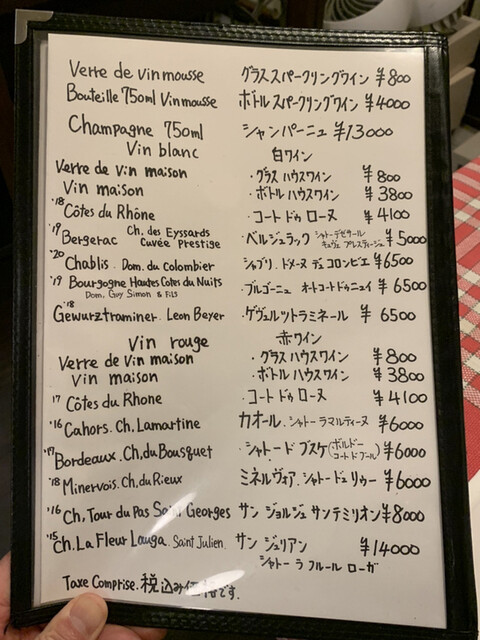 Verre de vin mousse グラススパークリングワイン ¥800
Bouteille 750ml Vin mousse ボトルスパークリングワイン ¥4000
Champagne 750ml シャンパーニュ ¥13000
Vin blanc 白ワイン
Verre de vin maison ・グラス ハウスワイン ¥800
Vin maison ・ボトル ハウスワイン ¥3800
'18 Côtes du Rhône ・コート ドゥ ローヌ ¥4100
'19 Bergerac Ch. des Eyssards Cuvée Prestige ・ベルジュラック シャトーデゼサール キュヴェ プレスティージュ ¥5000
'20 Chablis. Dom. du Colombier シャブリ. ドメーヌ デュ コロンビエ ¥6500
'19 Bourgogne Hautes Cotes du Nuits ・ブルゴーニュ オートコートドゥニュイ ¥6500
Dom, Guy Simon & Fils
'18 Gewurztraminer. Leon Beyer ・ゲヴュルツトラミネール ¥6500
Vin rouge 赤ワイン
Verre de vin maison ・グラス ハウスワイン ¥800
Vin maison ・ボトル ハウスワイン ¥3800
'17 Côtes du Rhone ・コート ドゥ ローヌ ¥4100
'16 Cahors. Ch. Lamartine カオール. シャトー ラマルティーヌ ¥6000
'17 Bordeaux. Ch. du Bousquet ・シャトー ド ブスケ (ボルドー コート ド ブール) ¥6000
'18 Minervois. Ch. du Rieux ミネルヴォア. シャトー ドュ リゥー ¥6000
'16 Ch, Tour du Pas Saint Georges サン ジョルジュ サンテミリオン ¥8000
'15 Ch. La Fleur Lauga. Saint Julien サン ジュリアン ¥14000
シャトー ラ フルール ローガ
Taxe Comprise. 税込み価格です.